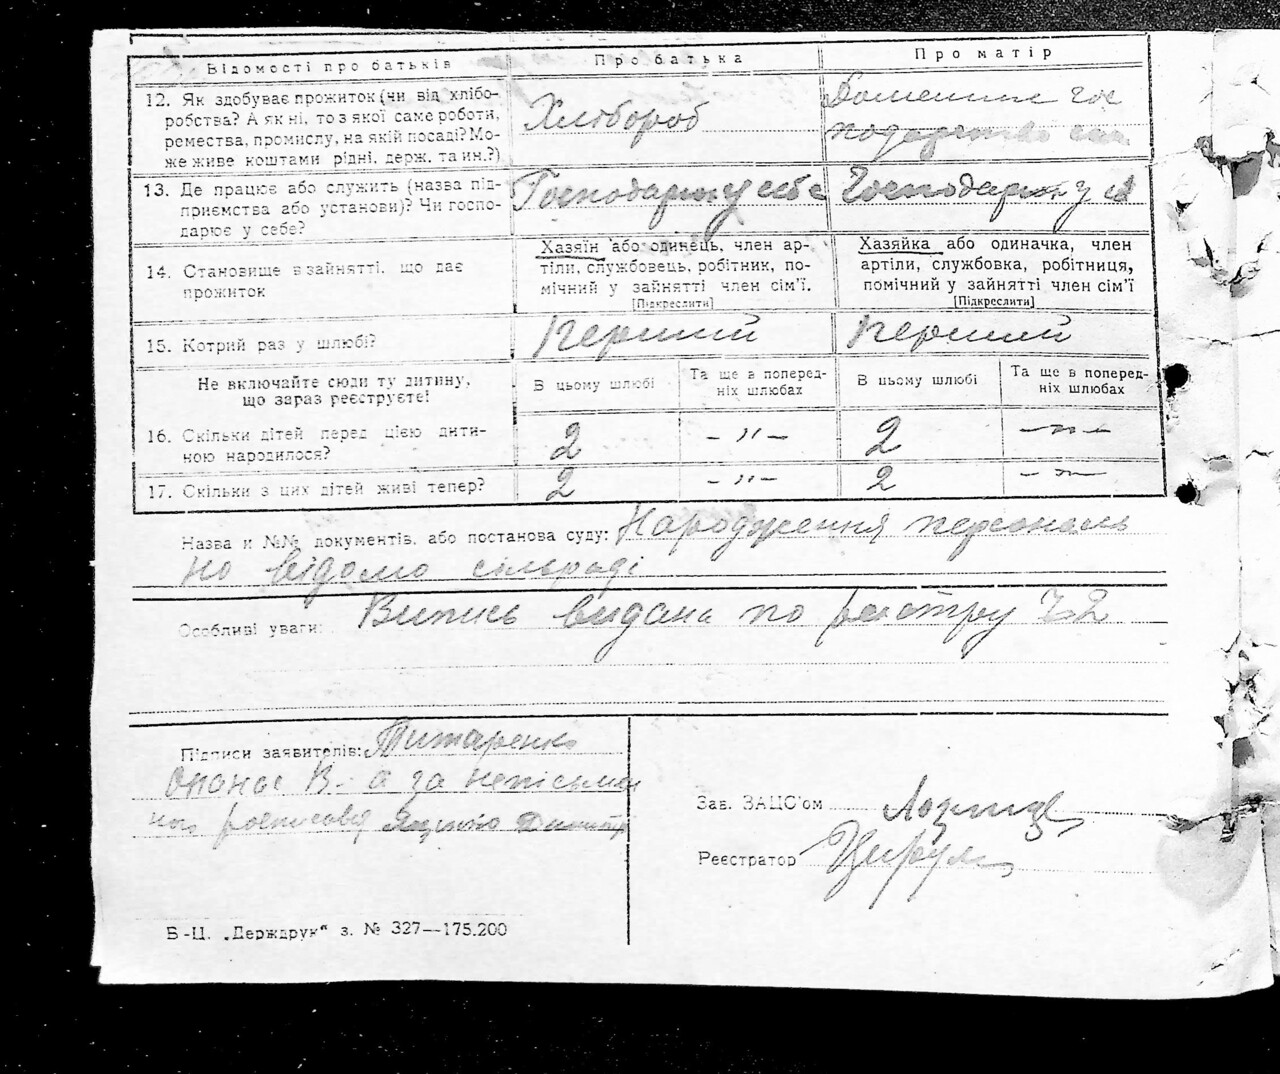 Відомості про батьків Про батька Про матір
12. Як здобуває прожиток (чи від хлібо-
робства? А як ні, то з якої саме роботи,
ремества, промислу, на якій посаді? Мо-
же живе коштами рідні, держ. та ин.?)
Хлібороб
Домашнє гос
подарство
13. Де працює або служить (назва під-
приємства або установи)? Чи госпо-
дарює у себе?
Господарює у себе Господарює у
14. Становище в зайнятті, що дає
прожиток
Хазяїн або одинець, член ар-
тілі, службовець, робітник, по-
мічний у зайнятті член сім'ї.
[Підкреслити]
Хазяйка або одиначка, член
артілі, службовка, робітниця,
помічний у зайнятті член сім'ї
[Підкреслити]
15. Котрий раз у шлюбі? Перший Перший
Не включайте сюди ту дитину,
що зараз реєструєте!
В цьому шлюбі Та ще в поперед-
ніх шлюбах
В цьому шлюбі Та ще в поперед-
ніх шлюбах
16. Скільки дітей перед цією дити-
ною народилося?
2 –"– 2 –"–
17. Скільки з цих дітей живі тепер? 2 –"– 2 –"–
Назва й №№ документів, або постанова суду: Народження персональ
но відомо сільраді
Особливі уваги: Випись видана по реєстру
Підписи заявителів: Титаренко
Опанас В. а за неписьмен
ного росписавсь Яценко
Зав. ЗАЦС'ом
Реєстратор
Б-Ц. „Держдрук“ з. № 327—175.200